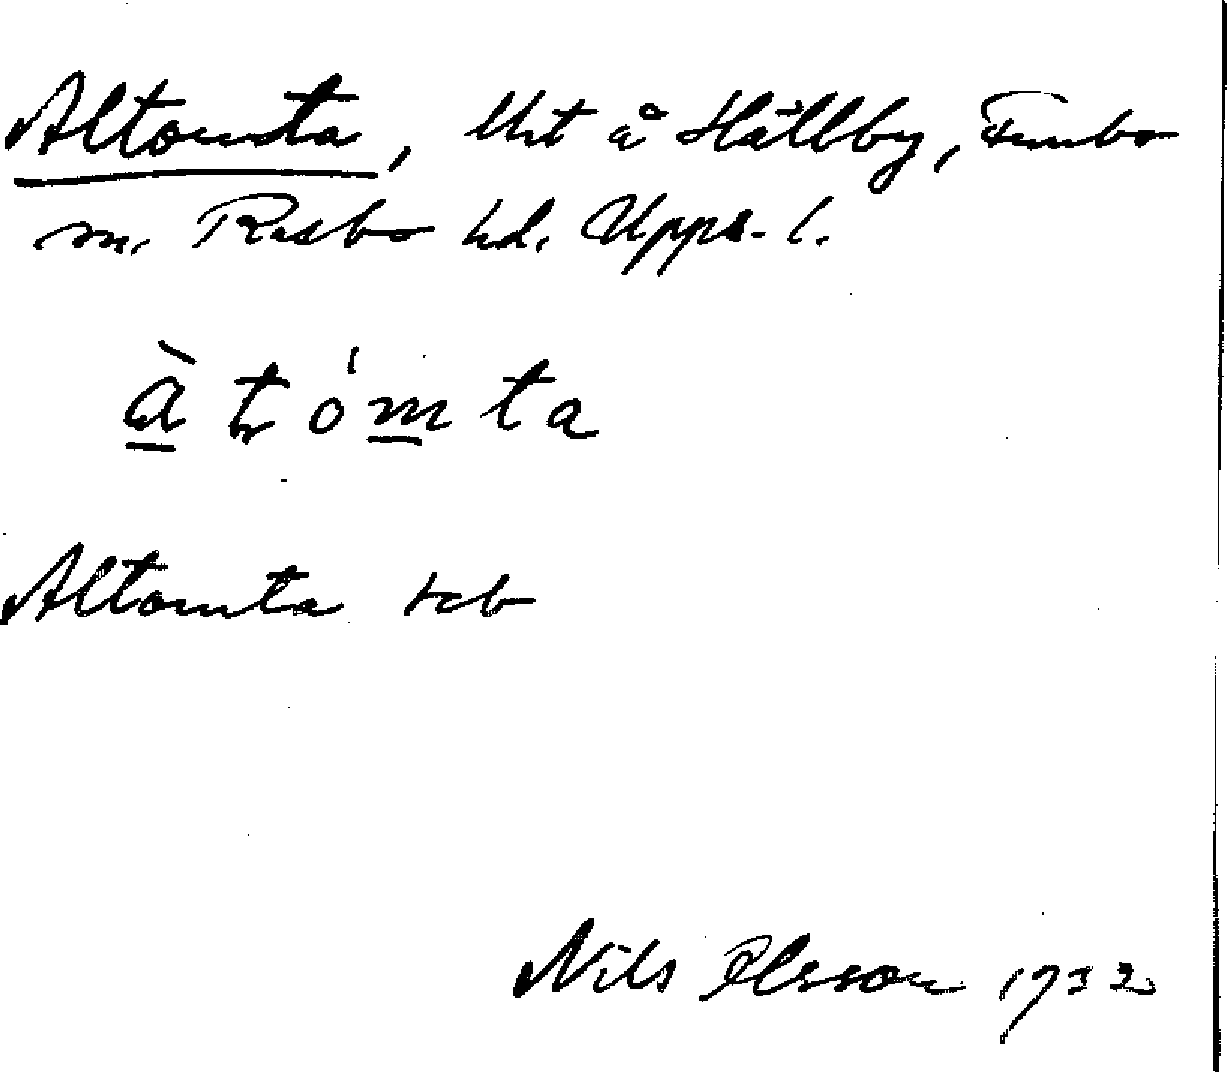 Altomta, lht å Hällby, Funbo
sn. Rasbo hd. Upps. l.
à t ó m t a
Altomta
Nils Olsson 1932